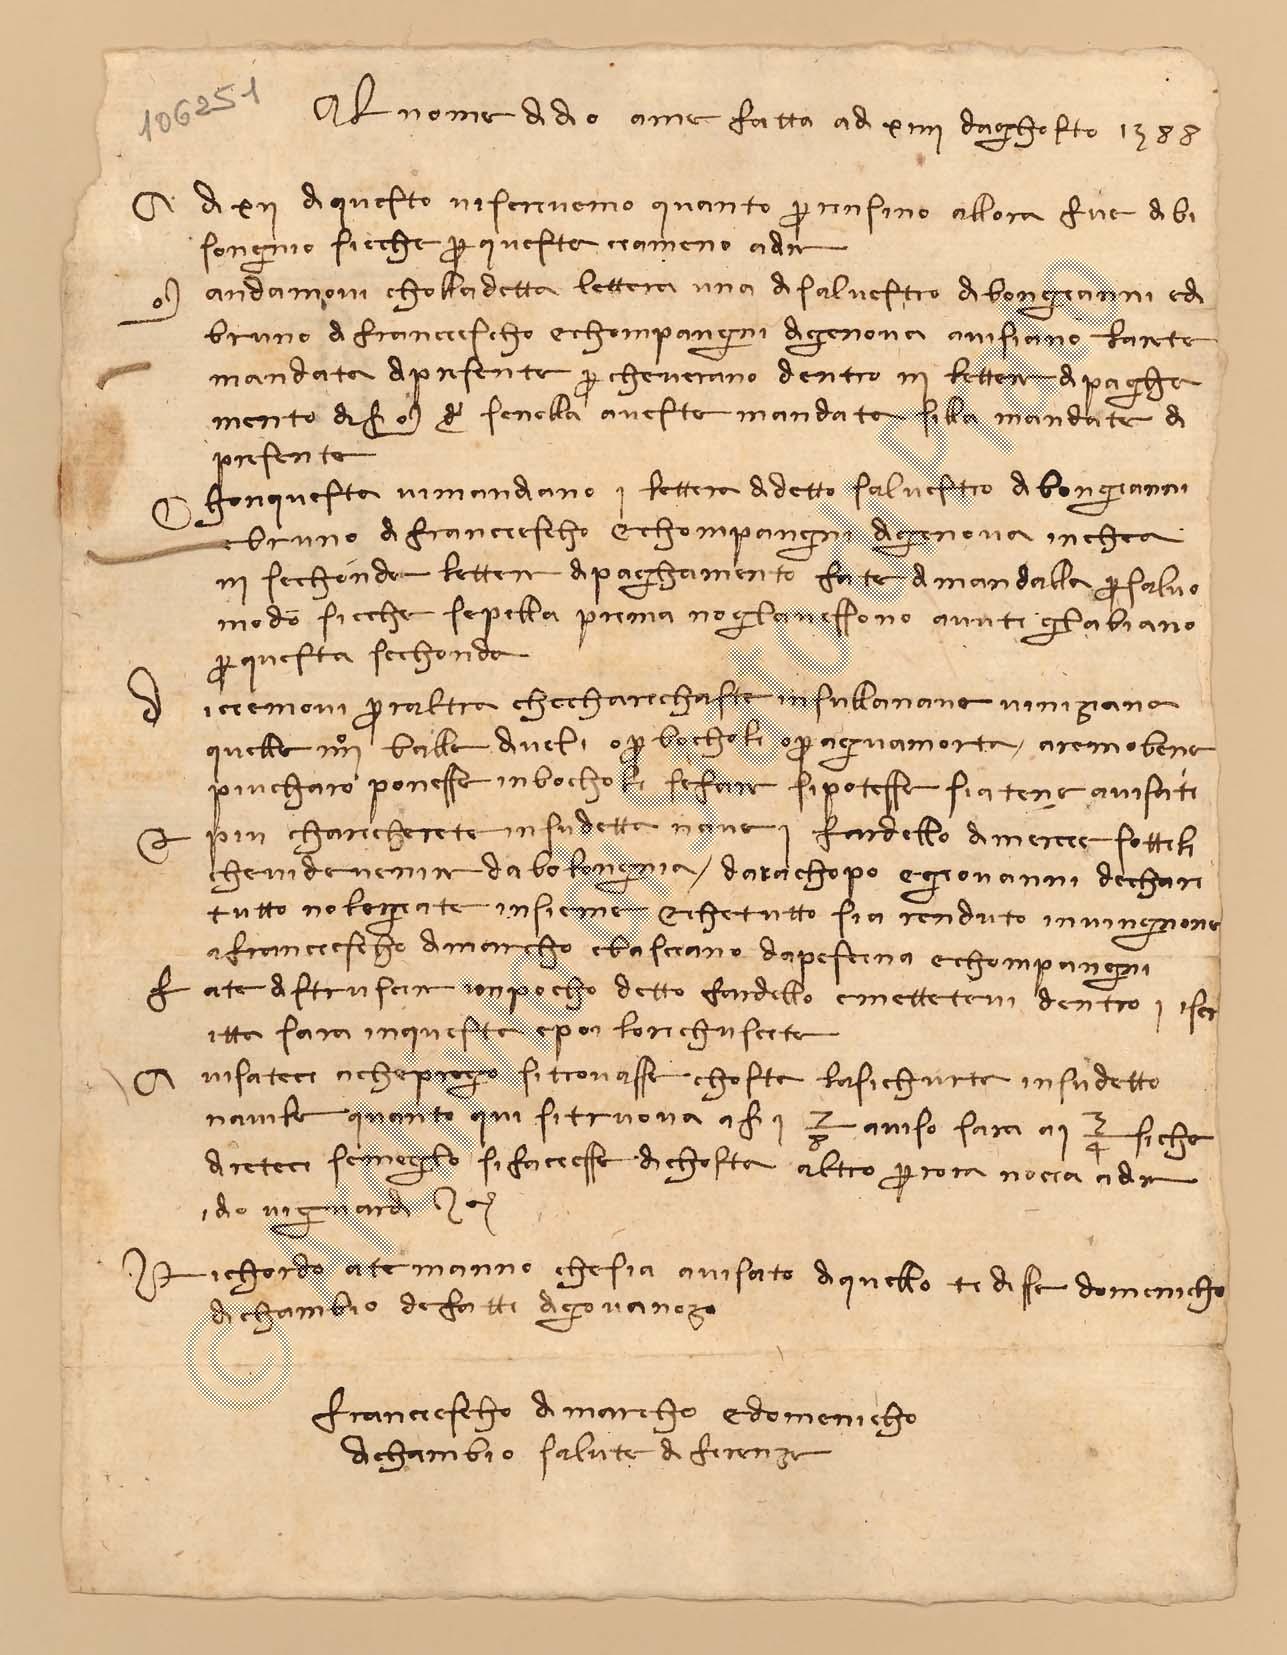 106251
Al nome di dio ame fatta adi xiiii daghosto 1388
A di xii di questo vi scrivemo quanto per insino allora fue di bi
songnio sicche per queste ci a meno a dir
Mandamovi cholla detta lettera una di salvestro di bongianni e di
bruno di franciescho e chompangni di gienova avisiano larete
mandata di presente perche verano dentro iii lettere di paghe
mento di f. M d se nella aveste mandata silla mandate di
presente
Chon questa vi mandiano i lettera di detto salvestro di bongianni
e bruno di franciescho e chompangni di gienova in che a
iii sechonde lettere di paghamento fate di mandalla per salvo
modo sicche se pella prima no gl avessono avuti gl abiano
per questa sechonda
diciemovi per altra che charichaste in sulla nave viniziana
quelle iiii balle di veli o per bocholi o per aguamorta / aremo bene
piu charo ponesse in bocholi se fare si potesse siatene avisati
E piu charicherete in su detta nave i fardello di mercie sottili
che vi de venire da bolongnia / da iachopo e giovanni dechari
tutto nolegiate insieme e che tutto sia renduto in vingnione
a franciescho di marcho e basciano da pescina e chompangni
fate disfrusciare un pocho detto fardello e mettetevi dentro i iscr
itta sara in questa e poi lo richuscite
Avisateci a che pregio si trovasse chosta la sichurta in su detto
navile quanto qui si truova a f. i 7/8 aviso sara a i 3/4 siche
direteci se meglo si faciesse di chosta altro per ora nocci a dir
idio vi guardi
Richordo a te manno che sia avisato di quello te disse domenicho
di chambio de fatti di giovanozo
franciescho di marcho e domenicho
di chambio salute di firenze